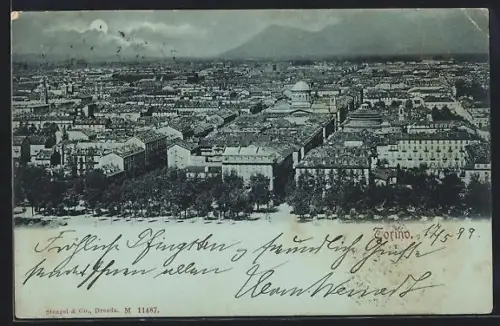 Torino. 17/5 99.
Fröhlich Pfingsten & freundlich Grüße
senden Ihnen allen
Stengel & Co., Dresda. M 11487.